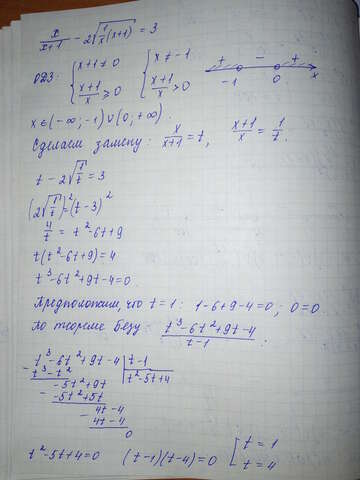 x/(x+1) - 2√(1/x (x+1)) = 3
ОДЗ: { x+1≠0 { x≠-1 + - +
(x+1)/x ⩾ 0 (x+1)/x > 0 -1 0 x
x∈(-∞;-1)∪(0;+∞).
Сделаем замену: x/(x+1) = t, (x+1)/x = 1/t.
t - 2√(1/t) = 3
(2√(1/t))² = (t-3)²
4/t = t²-6t+9
t(t²-6t+9)=4
t³-6t²+9t-4=0
Предположим, что t=1: 1-6+9-4=0; 0=0
По теореме Безу (t³-6t²+9t-4)/(t-1)
t³-6t²+9t-4 | t-1
- t³-t² | t²-5t+4
-5t²+9t
- -5t²+5t
4t-4
- 4t-4
0
t²-5t+4=0 (t-1)(t-4)=0 [ t=1
t=4